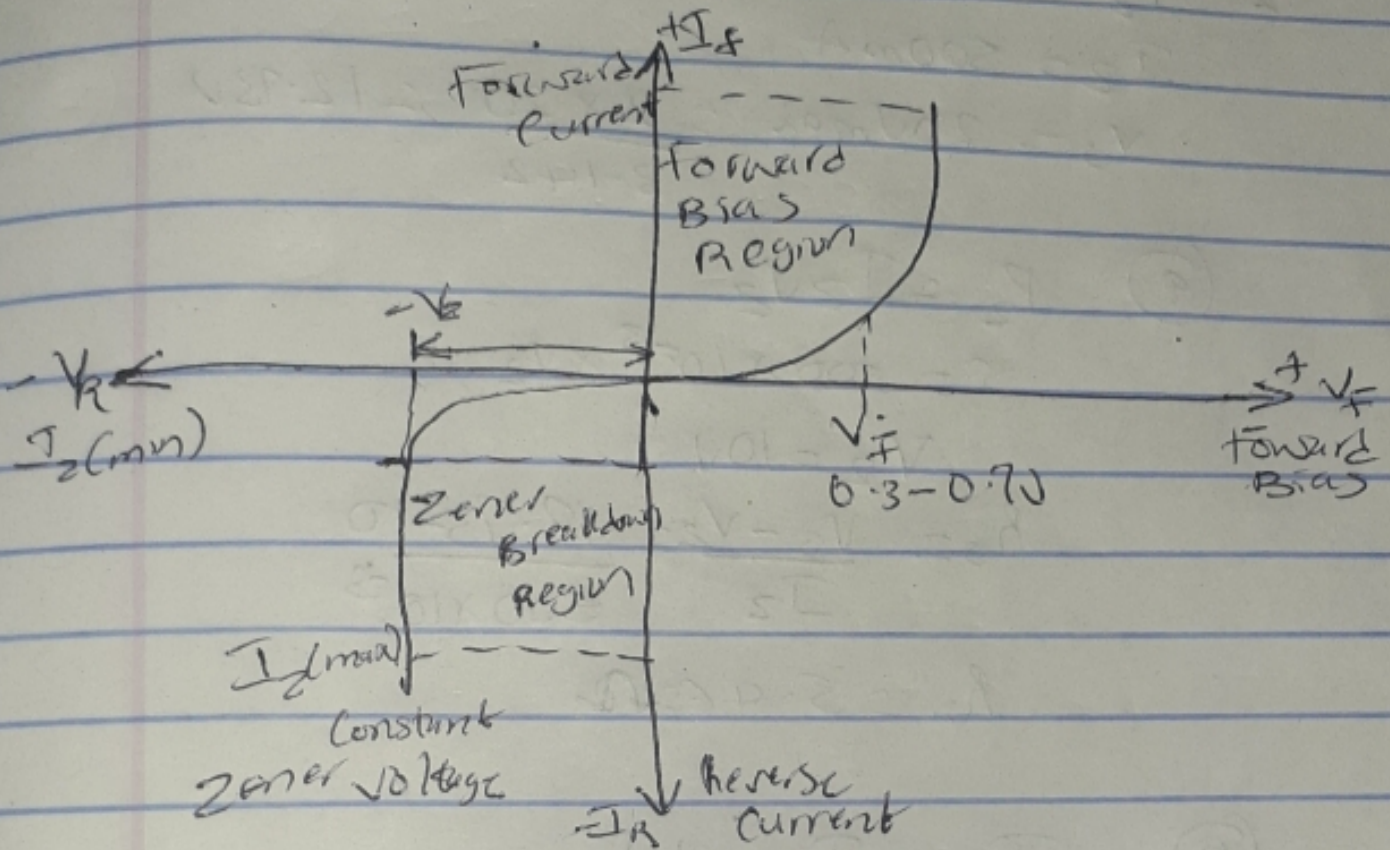 +I_f
Forward
Current
Forward
Bias
Region
-V_z
-V_R
+ V_F
I_z(min)
V_F
0.3-0.7V
Foward
Bias
Zener
Breakdown
Region
I_z(max)
Constant
Zener Voltage
-I_R
Reverse
Current